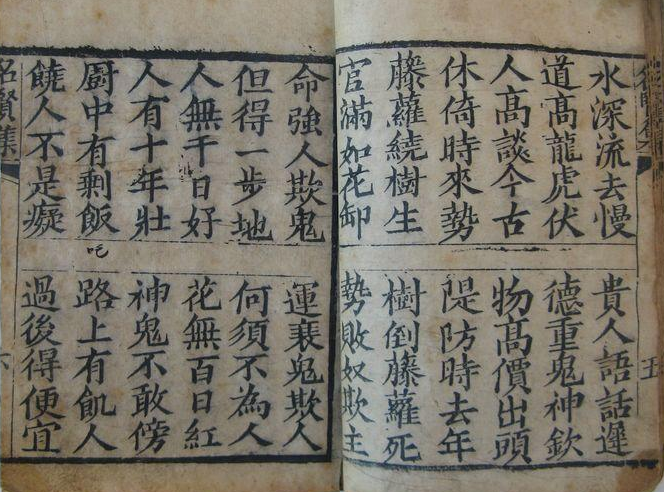 五
水深流去慢 貴人語話遲
道高龍虎伏 德重鬼神欽
人高談今古 物高價出頭
休倚時來勢 隄防時去年
藤蘿繞樹生 樹倒藤蘿死
官滿如花卸 勢敗奴欺主
命強人欺鬼 運衰鬼欺人
但得一步地 何須不為人
人無千日好 花無百日紅
人有十年壯 神鬼不敢傍
廚中有剩飯 路上有飢人
饒人不是癡 過後得便宜
名賢集